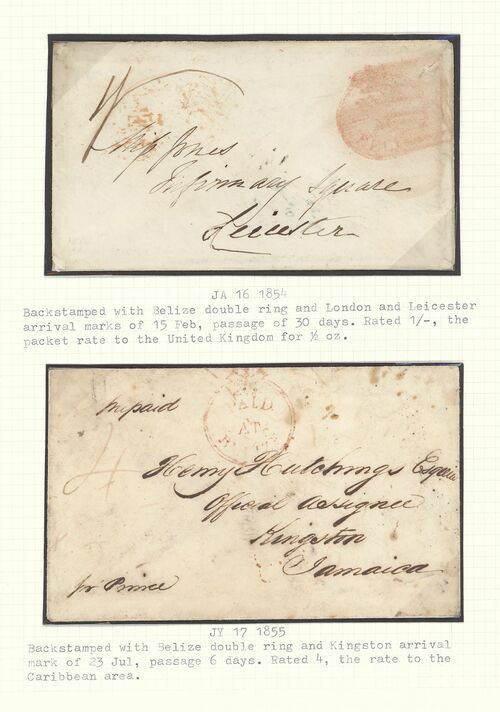 Miss Jones
Infirmary Square
Leicester
JA 16 1854
Backstamped with Belize double ring and London and Leicester
arrival marks of 15 Feb, passage of 30 days. Rated 1/-, the
packet rate to the United Kingdom for ½ oz.
PAID
AT
prepaid
4
Henry Hutchings Esquire
Official Assignee
Kingston
Jamaica
pr Prince
JY 17 1855
Backstamped with Belize double ring and Kingston arrival
mark of 23 Jul, passage 6 days. Rated 4, the rate to the
Caribbean area.